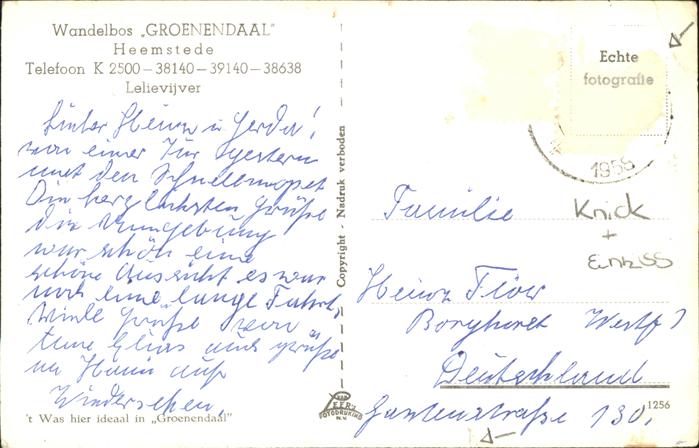 Wandelbos „GROENENDAAL"
Heemstede
Telefoon K 2500 – 38140 – 39140 – 38638
Lelievijver
Lieber Heinz u Gerda!
von einer Tur gestern
mit den Schnellmopet
Die herzlichsten Grüße
die Umgebung
war schön eine
schöne Aussicht es war
noch eine lange Fahrt,
Viele Grüße von
und Grüße
an Hanni auf
Wiedersehen,
't Was hier ideaal in „Groenendaal"
Copyright - Nadruk verboden
VAN
FOTODRUKIND
N.V.
Echte
fotografie
1958
Familie
Knick
+
Einriss
Heinz
Borghorst Westf)
Deutschland
1256
Gantenstraße 130,